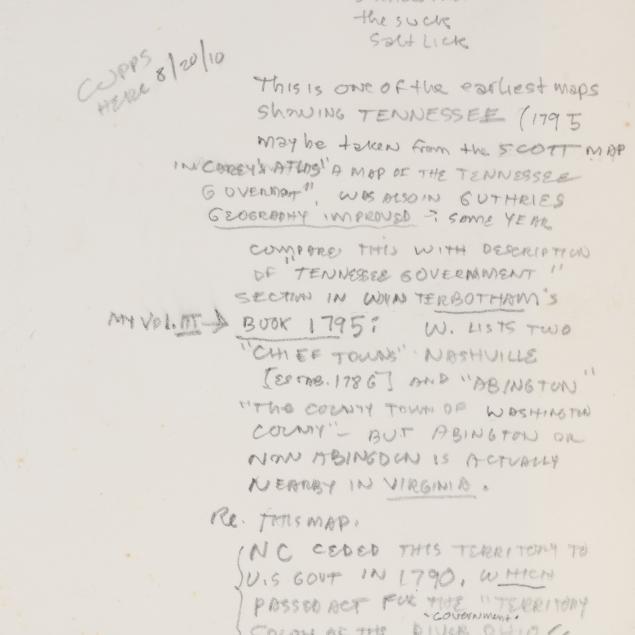 the suck
Salt Lick
CUPPS
HERE 8/20/10
This is one of the earliest maps
showing TENNESSEE (1795
may be taken from the SCOTT MAP
IN CAREY'S ATLAS "A MAP OF THE TENNESSEE
GOVERMNT", WAS ALSO IN GUTHRIES
GEOGRAPHY IMPROVED - SAME YEAR
COMPARE THIS WITH DESCRIPTION
OF "TENNESSEE GOVERNMENT"
SECTION IN WYNTERBOTHAM'S
MY VOL. III → BOOK 1795: W. LISTS TWO
"CHIEF TOWNS" NASHVILLE
[ESTAB. 1786] AND "ABINGTON"
"THE COUNTY TOWN OF WASHINGTON
COUNTY" - BUT ABINGTON OR
NOW ABINGDON IS ACTUALLY
NEARBY IN VIRGINIA.
Re. THIS MAP.
NC CEDED THIS TERRITORY TO
U.S GOVT IN 1790, WHICH
PASSED ACT FOR THE "TERRITORY
GOVERNMENT"
SOUTH OF THE RIVER OHIO